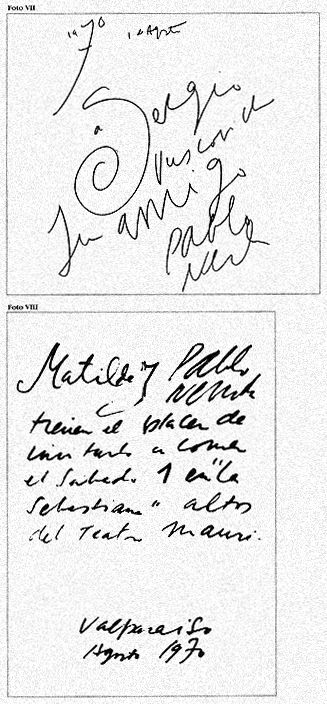 Foto VII
1970 1 de Agosto
a Sergio
Vuscovich
Su amigo
Pablo
Neruda
Foto VIII
Matilde y Pablo
Neruda
tienen el placer de
invitarlo a comer
el Sabado 1 en "La
Sebastiana" altos
del Teatro Mauri.
Valparaiso
Agosto 1970